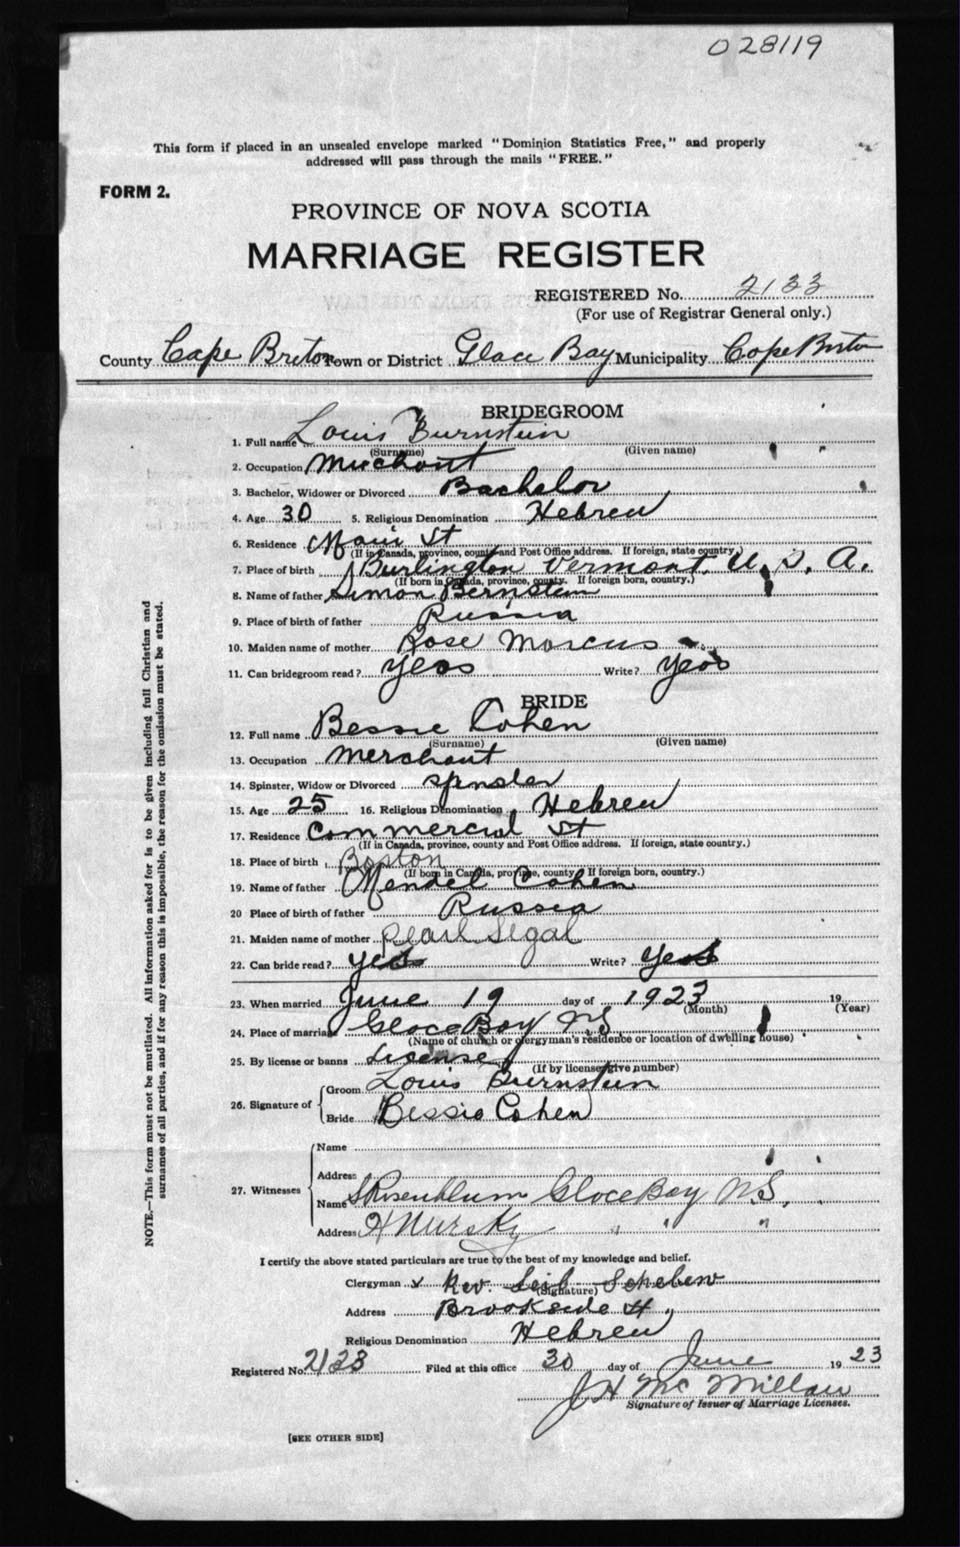 028119
This form if placed in an unsealed envelope marked "Dominion Statistics Free," and properly
addressed will pass through the mails "FREE."
FORM 2.
PROVINCE OF NOVA SCOTIA
MARRIAGE REGISTER
REGISTERED No. 2133
(For use of Registrar General only.)
County Cape Breton Town or District Glace Bay Municipality Cape Breton
BRIDEGROOM
1. Full name Louis Burnstein
(Surname) (Given name)
2. Occupation Merchant
3. Bachelor, Widower or Divorced Bachelor
4. Age 30 5. Religious Denomination Hebrew
6. Residence Main St
(If in Canada, province, county and Post Office address. If foreign, state country.)
7. Place of birth Burlington Vermont, U. S. A.
(If born in Canada, province, county. If foreign born, country.)
8. Name of father Simon Bernstein
9. Place of birth of father Russia
10. Maiden name of mother Rose Marcus
11. Can bridegroom read? Yeas Write? Yeas
BRIDE
12. Full name Bessie Cohen
(Surname) (Given name)
13. Occupation Merchant
14. Spinster, Widow or Divorced Spinster
15. Age 25 16. Religious Denomination Hebrew
17. Residence Commercial St
(If in Canada, province, county and Post Office address. If foreign, state country.)
18. Place of birth Boston
(If born in Canada, province, county. If foreign born, country.)
19. Name of father Mendel Cohen
20 Place of birth of father Russia
21. Maiden name of mother Pearl Segal
22. Can bride read? Yes Write? Yes
23. When married June 19 day of 1923 19
(Month) (Year)
24. Place of marriage Glace Bay NS
(Name of church or clergyman's residence or location of dwelling house)
25. By license or banns License
(If by license, give number)
26. Signature of
Groom Louis Burnstein
Bride Bessie Cohen
27. Witnesses
Name
Address
Name S Rosenblum Glace Bay N.S.
Address H Nursky " " "
I certify the above stated particulars are true to the best of my knowledge and belief.
Clergyman Rev. Leib
(Signature)
Address Brookside St,
Religious Denomination Hebrew
Registered No. 2133 Filed at this office 30 day of June 1923
J H McMillan
Signature of Issuer of Marriage Licenses.
[SEE OTHER SIDE]
NOTE.—This form must not be mutilated. All information asked for is to be given including full Christian and
surnames of all parties, and if for any reason this is impossible, the reason for the omission must be stated.